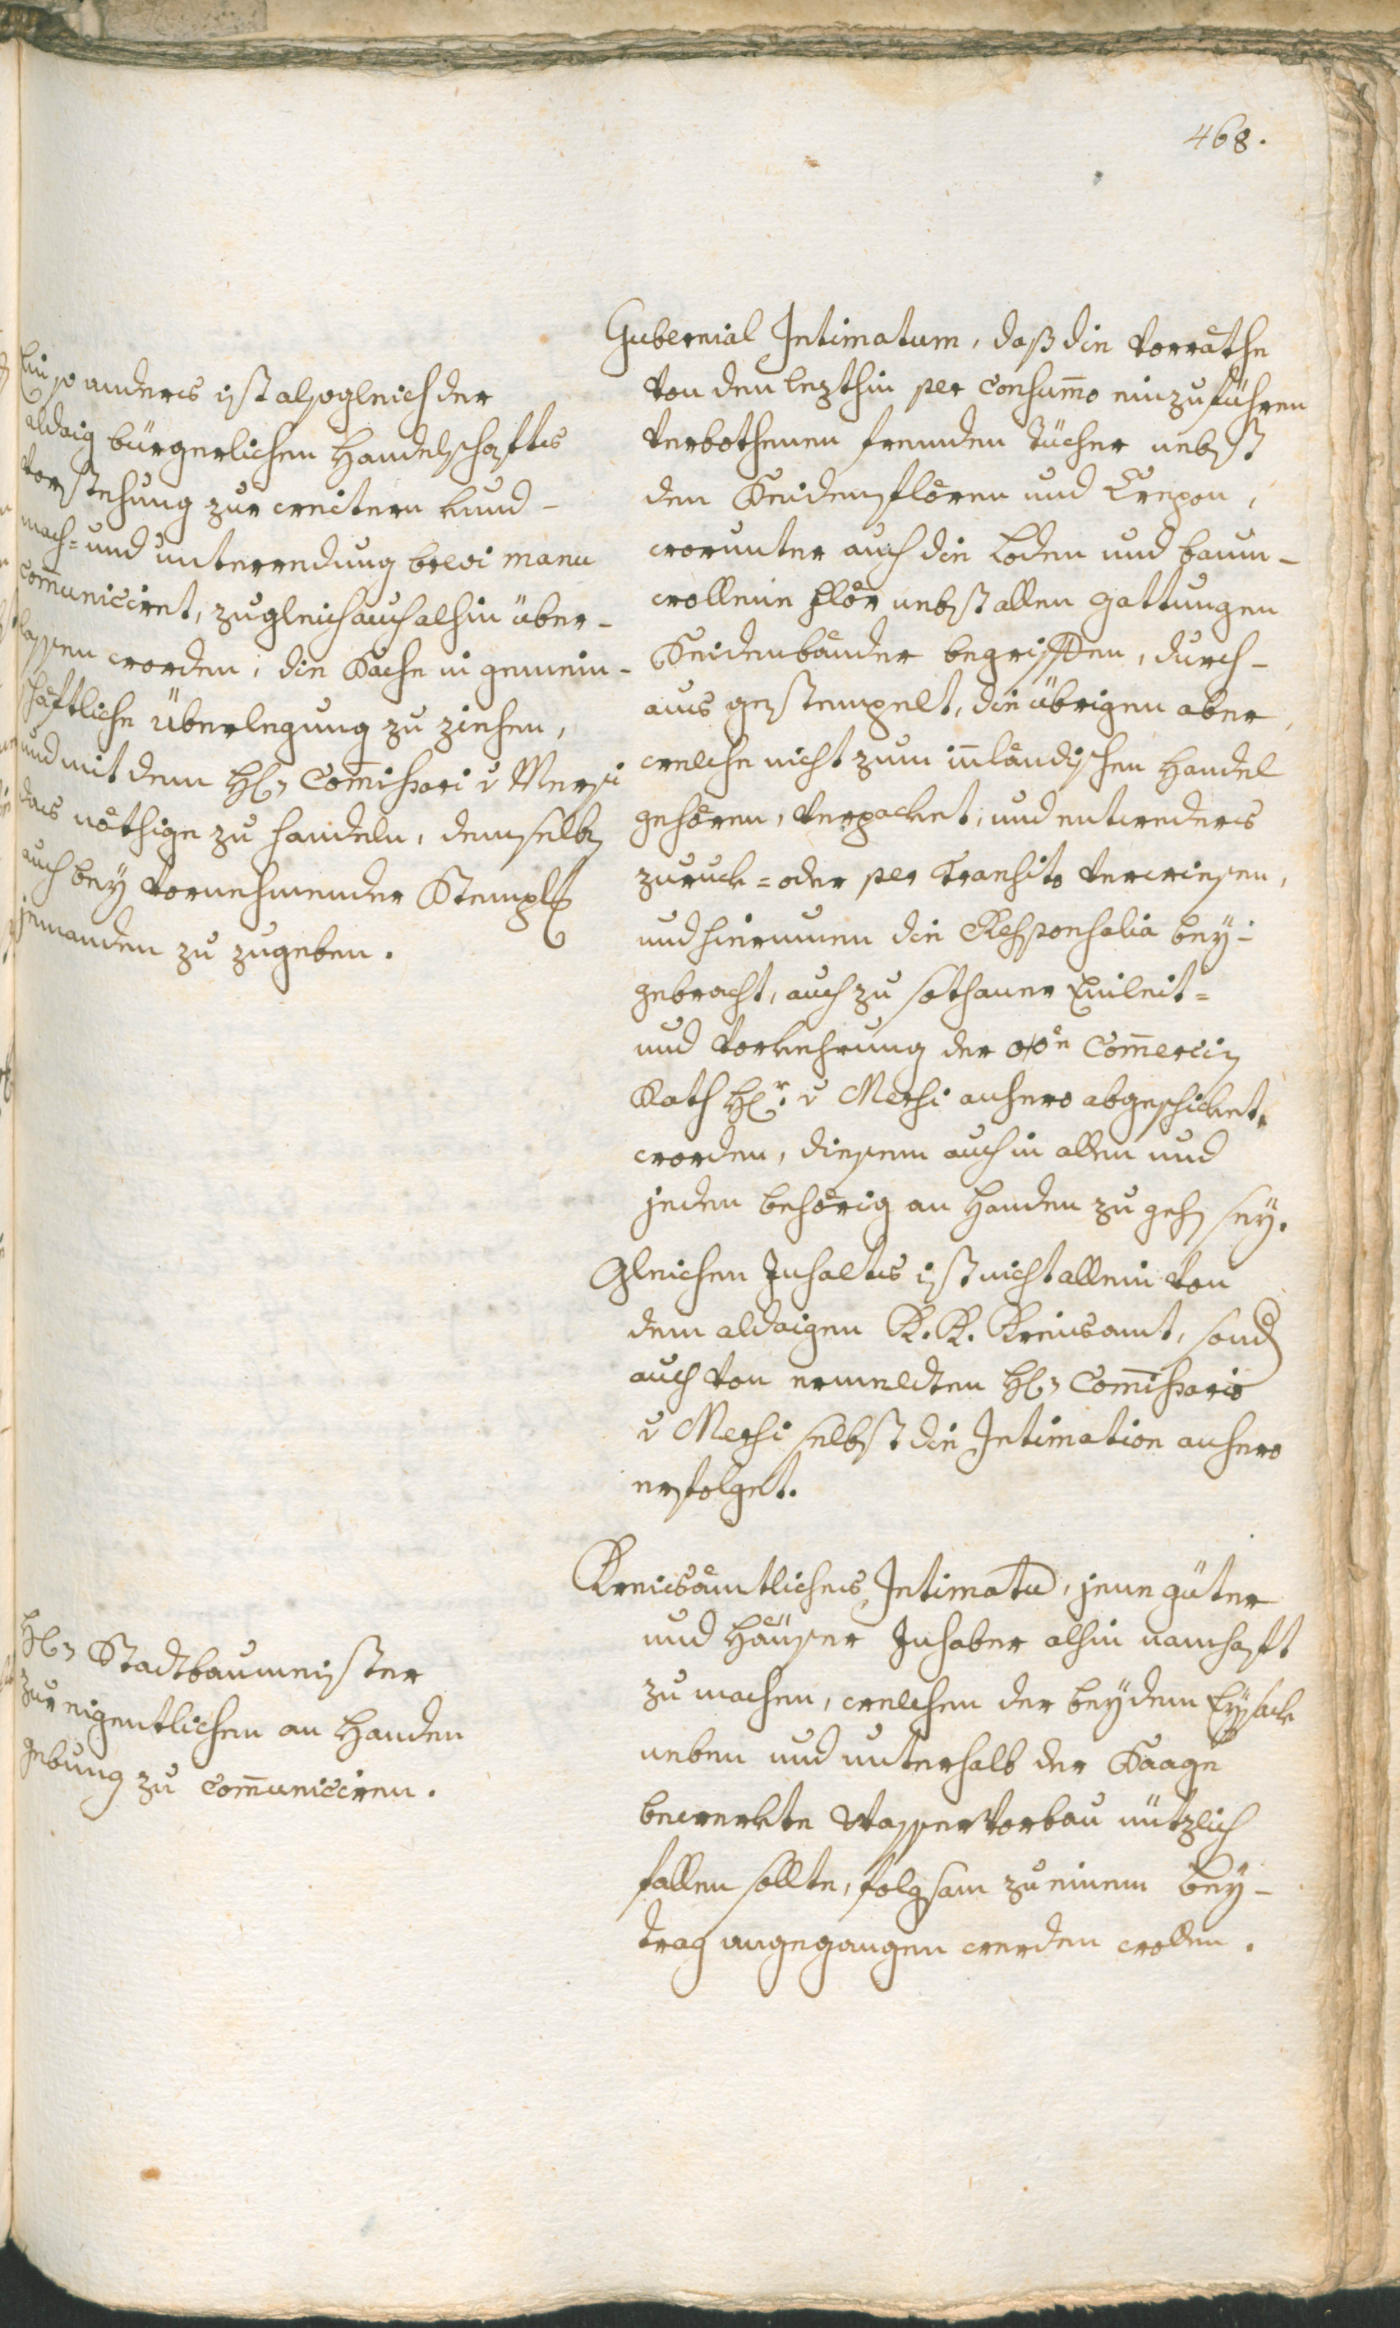 468.
Ein so anders ist alsogleich der
aldaig bürgerlichen Handelschafts
Vorstehung zur weitern Kund-
mach- und unterredung brevi manu
Communiciret, zugleich auch alhin über-
lassen worden, die Sache in gemein-
schäftliche Überlegung zu ziehen,
und mit dem H: Commissari v Mersi
das nöthige zu handeln, demselben
auch bey vornehmender Stempl
jemanden zu zugeben.
Gubernial Intimatum, daß die Vorräthe
von den lezthin per Consummo einzuführen
verbothenen fremden Tücher nebst
den Seidenflören und Crepon,
worunter auch die Loden und baum-
wollene Flör nebst allen gattungen
Seidenbänder begriffen, durch-
aus gestempelt, die übrigen aber
welche nicht zum inländischen Handel
gehören, verpacket, und entweders
zuruck- oder per Transito verwiesen,
und hierinnen die Responsalia bey-
gebracht, auch zu sothaner Einleit-
und Vorkehrung der Commercien
Rath H:r v Mersi anhero abgeschicket
worden, diesem auch in allen und
jeden behörig an Handen zu gehen sey.
Gleichen Inhalts ist nicht allein von
dem aldaigen K. K. Kreisamt, sondern
auch von ermeldten H: Commissario
v Mersi selbst die Intimation anhero
erfolget.
Kreisämtliches Intimatum, jene güter
und Häuser Inhaber alhin namhaft
zu machen, welchen der bey dem Eysack
neben und unterhalb der Saage
bewerkte Wasser Vorbau nützlich
fallen sollte, folgsam zu einem bey-
trag angegangen werden wollen.
H: Stadtbaumeister
zur eigentlichen an Handen
gebung zu Communiciren.